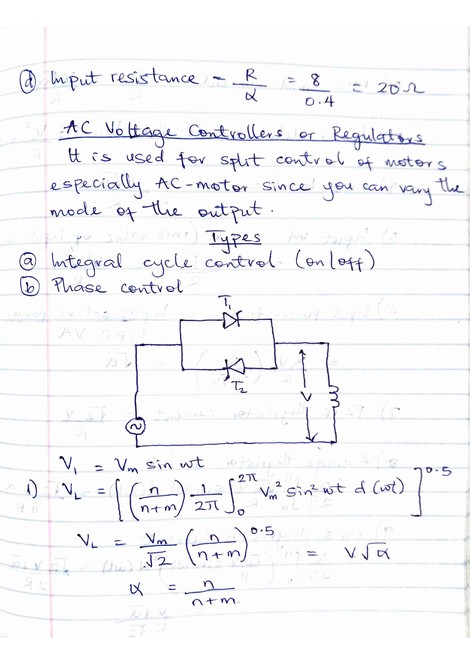 (d) Input resistance - R/α = 8/0.4 = 20Ω
AC Voltage Controllers or Regulators
It is used for split control of motors
especially AC-motor since you can vary the
mode of the output.
Types
(a) Integral cycle control (on/off)
(b) Phase control
T₁
T₂
V
V₁ = Vm sin wt
1) VL = [(n/(n+m)) 1/2π ∫₀^2π Vm² sin² wt d(wt)]^0.5
VL = Vm/√2 (n/(n+m))^0.5 = V√α
α = n/(n+m)